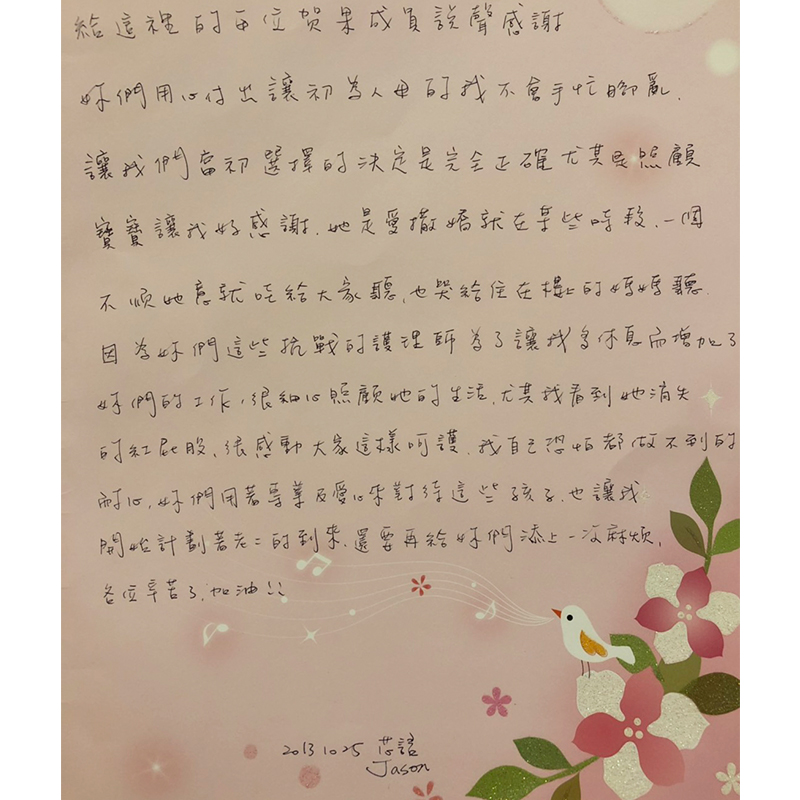 給這裡的每位贺果成員說聲感謝
妳們用心付出讓初為人母的我不會手忙腳亂.
讓我們當初選擇的決定是完全正確尤其是照顧
寶寶讓我好感謝.她是愛撒嬌就在某些時段.一個
不順她意就哇給大家聽,也哭給住在樓上的媽媽聽.
因為妳們這些抗戰的護理師為了讓我多休息而增加了
妳們的工作,很細心照顧她的生活,尤其我看到她消失
的紅屁股,很感動大家這樣呵護.我自己恐怕都做不到的
耐心,妳們用著專業及愛心來對待這些孩子.也讓我
開始計劃著老二的到來.還要再給妳們添上一次麻煩,
各位辛苦了.加油!!
2013 10 25 芯語
Jason